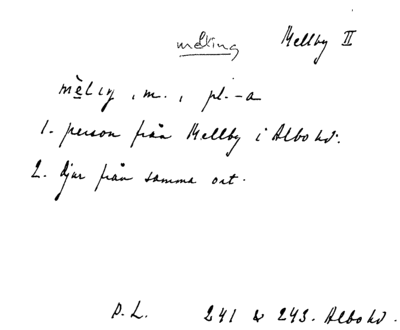 mäling Mellby II
mèliŋ, m., pl. -a
1. person från Mellby i Albo hd.
2. djur från samma ort.
P.L. 241 & 243. Albo hd.